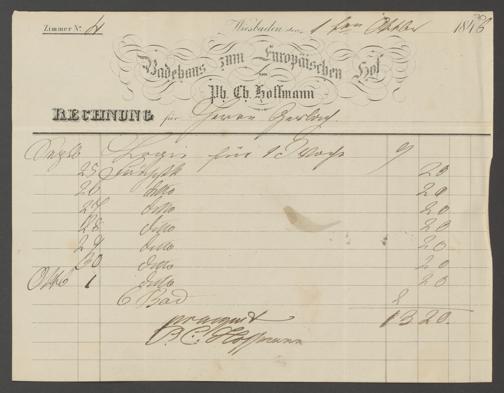 Zimmer No. 4
Wiesbaden den 1ten Octber 1846
Badehaus zum Europäischen Hof
von
Ph. Ch. Hoffmann
RECHNUNG für Herrn Gerlach.
Septb Logis für 1 Woche 9
25 Frühstk 20
26 ditto 20
27 ditto 20
28 ditto 20
29 ditto 20
30 ditto 20
Octb 1 ditto 20
6 Bad 2
13 20.
P. C. Hoffmann